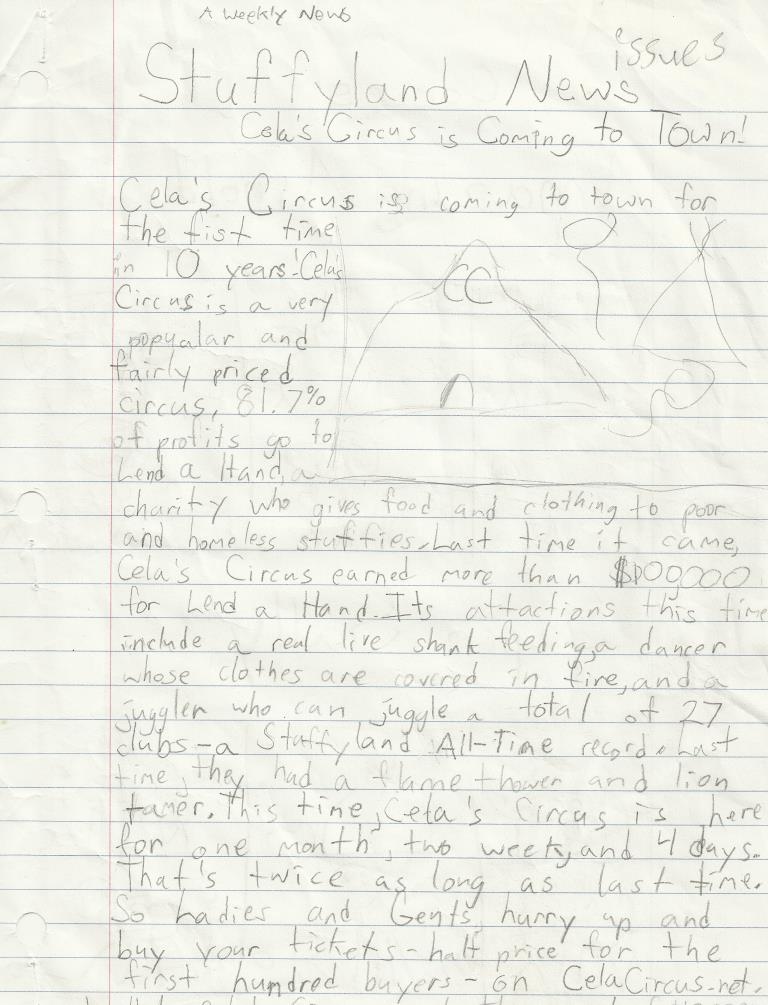 A Weekly News
issue 3
Stuffyland News
Cela's Circus is Coming to Town!
Cela's Circus is coming to town for
the fist time
in 10 years! Cela's
Circus is a very
popyalar and
fairly priced
circus, 81.7%
of profits go to
Lend a Hand, a
CC
charity who gives food and clothing to poor
and homeless stuffies. Last time it came,
Cela's Circus earned more than $100,000
for Lend a Hand. Its attactions this time
include a real live shark feeding, a dancer
whose clothes are covered in fire, and a
juggler who can juggle a total of 27
clubs - a Stuffyland All-Time record. Last
time, they had a flame thower and lion
tamer. This time, Cela's Circus is here
for one month, two weeks, and 4 days.
That's twice as long as last time.
So Ladies and Gents, hurry up and
buy your tickets - half price for the
first hundred buyers - on CelaCircus.net.